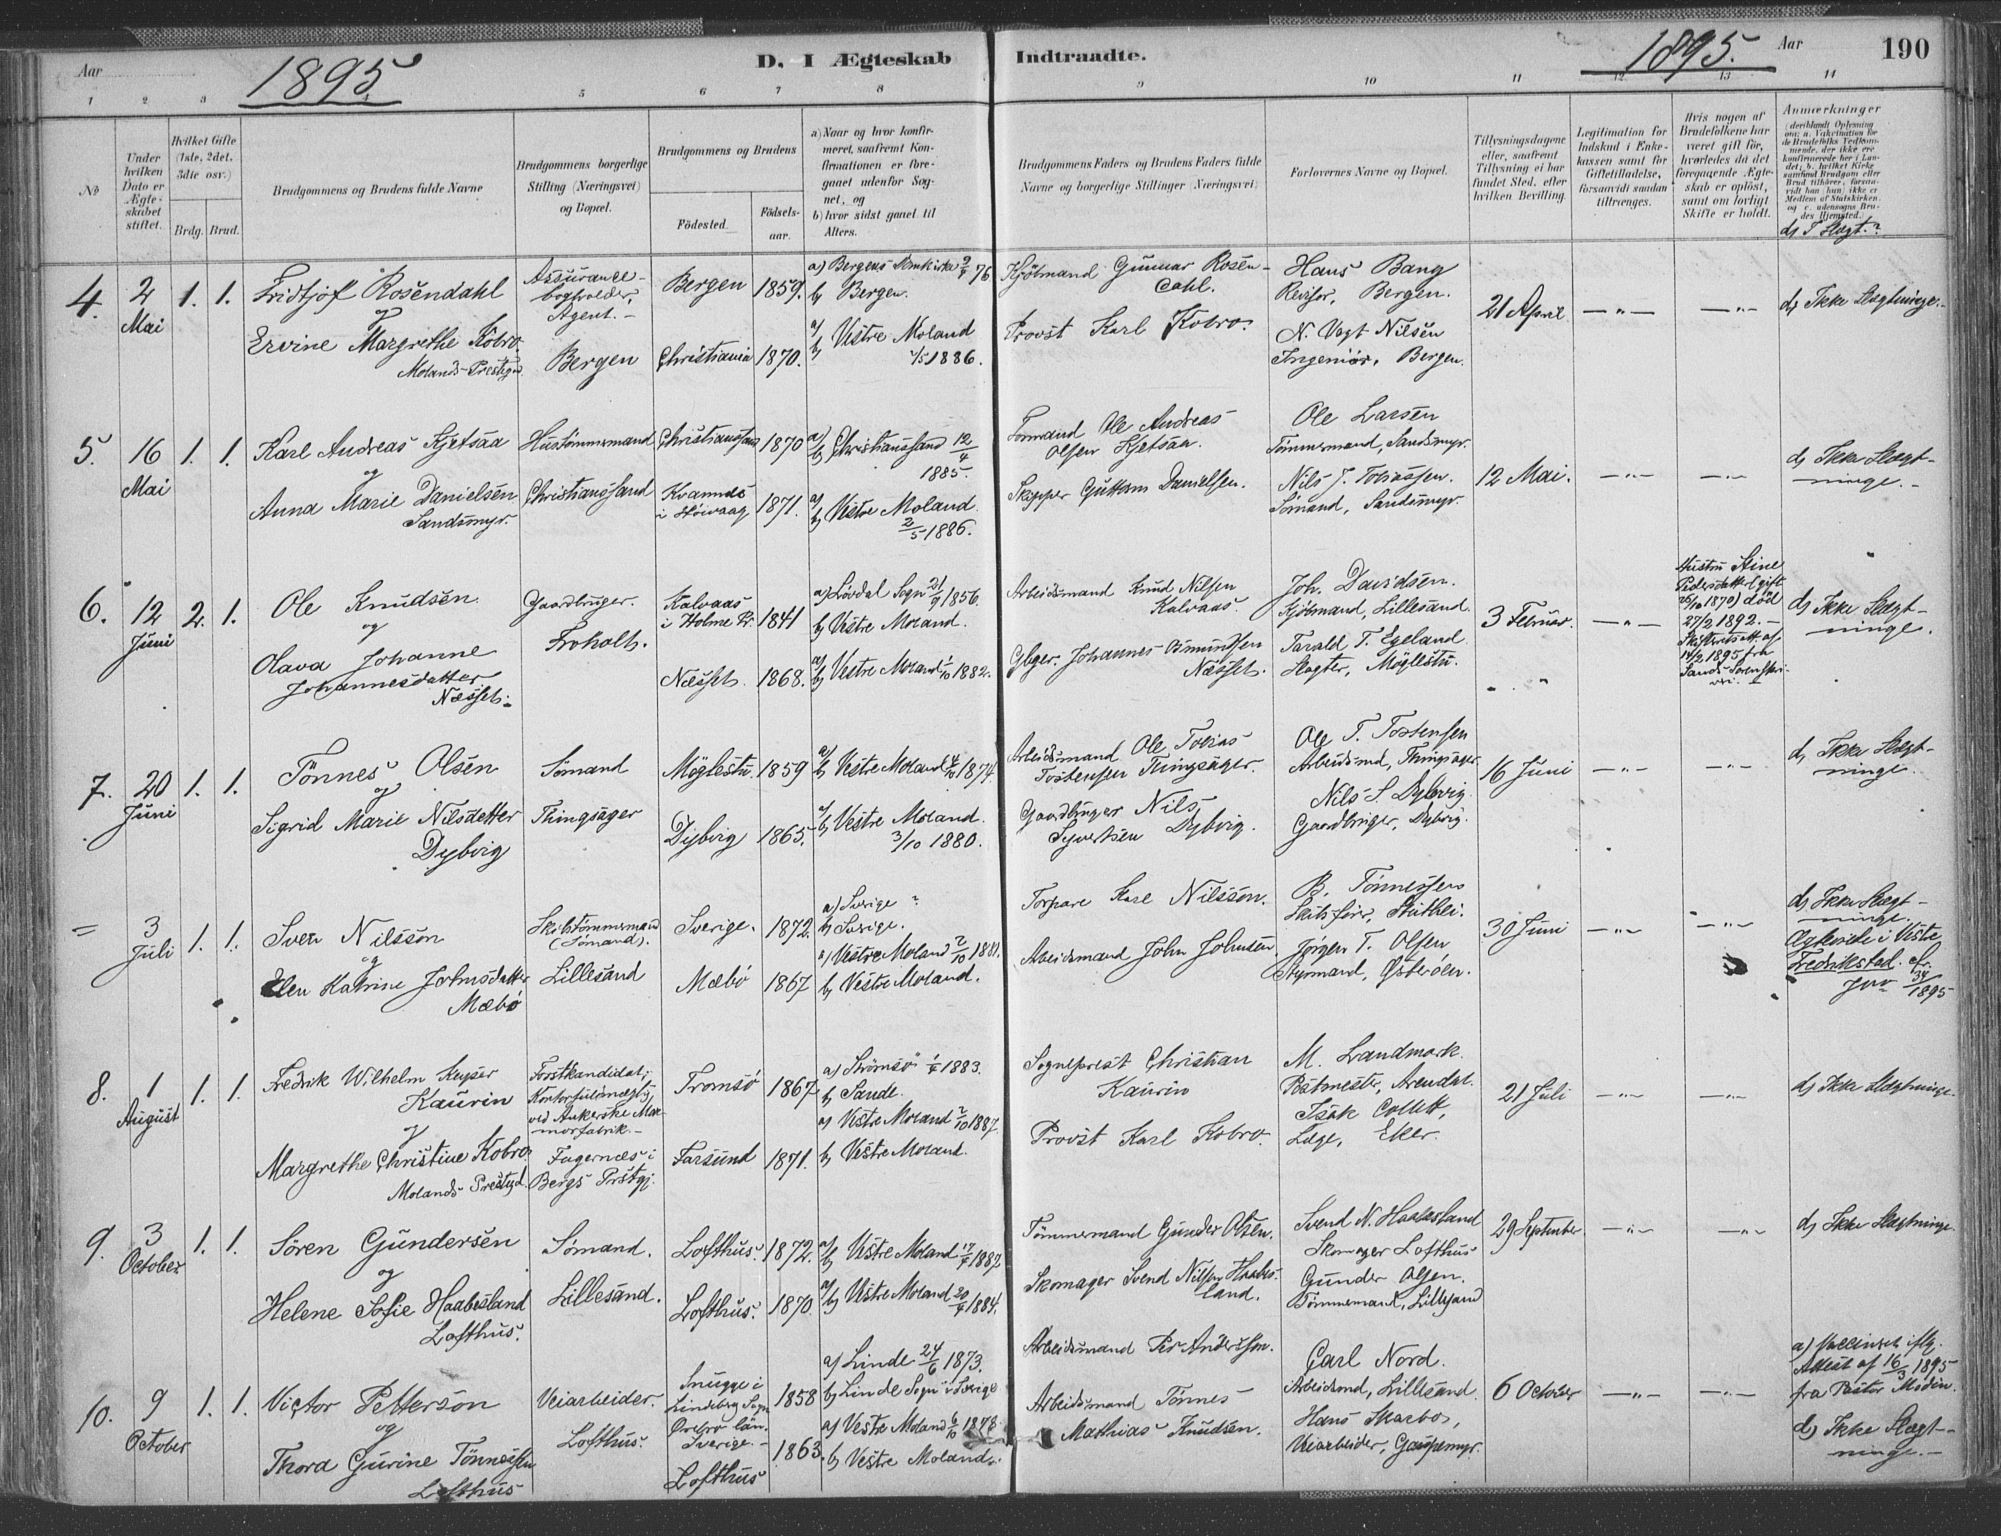 Aar 1895. D. I Ægteskab Indtraadte. 1895. Aar 190
1 2 3 5 6 7 8 9 10 11 12 13 14
No
Under hvilken Dato er Ægteskabet stiftet.
Hvilket Gifte (1ste, 2det, 3die osv.)
Brdg. Brud.
Brudgommens og Brudens fulde Navne
Brudgommens borgerlige Stilling (Næringsvei) og Bopæl.
Brudgommens og Brudens
Fødested. Fødselsaar.
a) Naar og hvor konfirmeret, saafremt Konfirmationen er foregaaet udenfor Sognet, og
b) hvor sidst gaaet til Alters.
Brudgommens Faders og Brudens Faders fulde Navne og borgerlige Stillinger (Næringsvei)
Forlovernes Navne og Bopæl.
Tillysningsdagene eller, saafremt Tillysning ei har fundet Sted, efter hvilken Bevilling.
Legitimation for Indskud i Enkekassen samt for Giftetilladelse, forsaavidt saadan tiltrænges.
Hvis nogen af Brudefolkene har været gift før, hvorledes da det foregaaende Ægteskab er opløst, samt om lovligt Skifte er holdt.
Anmærkninger
d) I Slægt?
4. 2 Mai 1. 1.
Fridtjof Rosendahl
og
Ervine Margrethe Kobro
Molands Prestegd.
Assurancebogholder,
Agent.
Bergen
Bergen 1859.
Christiania 1870.
a) Bergens Domkirke 76
b) Bergen.
a) b) Vestre Moland
1886.
Kjøbmand Gunnar Rosendahl.
Provst Karl Kobro.
Hans Bang
Revisor, Bergen.
N. Vogt Nilsen
Ingeniør, Bergen.
21 April — " — — " —
d) Ikke Slægtninge.
5. 16 Mai 1. 1.
Karl Andreas Kjetsaa
og
Anna Marie Danielsen
Sandsmyr.
Hustømmermand
Christianssand
Christianssand 1870
Kvannes
i Høivaag 1871.
a) b) Christianssand 12/4
1885.
a) b) Vestre Moland
2/5 1886.
Formand Ole Andreas
Olsen Kjetsaa.
Skipper Guttorm Danielsen.
Ole Larsen
Tømmermand, Sandsmyr.
Nils J. Tobiassen.
Sømand, Sandsmyr.
12 Mai. — " — — " —
d) Ikke Slægtninge.
6. 12 Juni 2. 1.
Ole Knudsen
og
Olava Johanne
Johannesdatter
Næsset.
Gaardbruger.
Froholt.
Kalvaas
i Holme Pr. 1841
Næsset 1868.
a) Løvdal Sogn 21/9 1856.
b) Vestre Moland.
a) b) Vestre Moland 1/10 1882.
Arbeidsmand Knud Nilsen
Kalvaas.
Gbger. Johannes Osmundsen
Næsset.
Joh. Davidsen.
Kjøbmand, Lillesand
Tarald T. Egeland
Slagter, Møglestu.
3 Februar. — " —
Hustru Stine
Pedersdatter (gift
26/10 1870) død
27/2 1892. —
Skifteattest af
14/2 1895 fra
Sands Sorenskriveri.
d) Ikke Slægtninge.
7. 20 Juni 1. 1.
Tønnes Olsen
og
Sigrid Marie Nilsdatter
Dybvig
Sømand
Thingsager
Møglestu. 1859
Dybvig 1865.
a) b) Vestre Moland 4/10 1874.
a) b) Vestre Moland.
3/10 1880.
Arbeidsmand Ole Tobias
Tostensen Thingsager.
Gaardbruger Nils
Syvertsen Dybvig.
Ole T. Tostensen
Arbeidsmd, Thingsager
Nils S. Dybvig
Gaardbruger, Dybvig.
16 Juni — " — — " —
d) Ikke Slægtninge.
= 3 Juli 1. 1.
Sven Nilsson
og
Elen Katrine Johnsdatter
Mæbø
Skibstømmermand
(Sømand).
Lillesand
Sverige. 1872.
Mæbø 1867
a) Sverige ?
b) Sverige.
a) Vestre Moland 2/10 1881.
b) Vestre Moland.
Torpare Karl Nilsson.
Arbeidsmand John Johnsen
B. Tønnessen
Skibsfører,
Jørgen T. Olsen
Styrmand, Østerøen.
30 Juni — " — — " —
d) Ikke Slægtninge.
Ægteviede i Vestre
Fredrikstad. cfr.
Jour 34/1895
8. 1 August 1. 1.
Fredrik Wilhelm Keyser
Kaurin
og
Margrethe Christine Kobro
Molands Prestegd.
Forstkandidat,
Kontorfuldmægtig
ved Ankerske Marmorfabrik. —
Fagernæs i
Bergs Prstgj.
Tromsø 1867
Farsund 1871.
a) Strømsø 1883.
b) Sande.
a) Vestre Moland 2/10 1887.
b) Vestre Moland.
Sogneprest Christian
Kaurin
Provst Karl Kobro.
M. Landmark.
Postmester, Arendal.
Isak Collett,
Læge, Eker.
21 Juli — " — — " —
d) Ikke Slægtninge.
9. 3 October 1. 1.
Søren Gundersen
og
Helene Sofie Haabesland
Lofthus.
Sømand.
Lillesand.
Lofthus. 1872.
Lofthus. 1870
a) b) Vestre Moland 1887
a) b) Vestre Moland 1884.
Tømmermand Gunder Olsen.
Skomager Svend Nilsen Haabesland.
Svend N. Haabesland
Skomager Lofthus
Gunder Olsen.
Tømmermand, Lillesand
29 September — " — — " —
d) Ikke Slægtninge.
10. 9 October 1. 1.
Victor Petterson
og
Thora Gurine Tønnessen
Lofthus
Veiarbeider.
Lofthus.
Snugge i
Lindesberg Sogn
Örebro län.
Sverige. — 1858
Lofthus 1863.
a) Linde 24/6 1873.
b) Linde Sogn i Sverige
a) Vestre Moland 6/10 1878
b) Vestre Moland.
Arbeidsmand Per Andersson.
Arbeidsmand Tønnes
Mathias Knudsen.
Carl Nord.
Arbeidsmd, Lillesand.
Hans Skarbo,
Veiarbeider, Gaupemyr.
6 October — " — — " —
a) Vaccineret iflg.
Attest af 16/3 1895
fra Pastor Modin.
d) Ikke Slægtninge. —